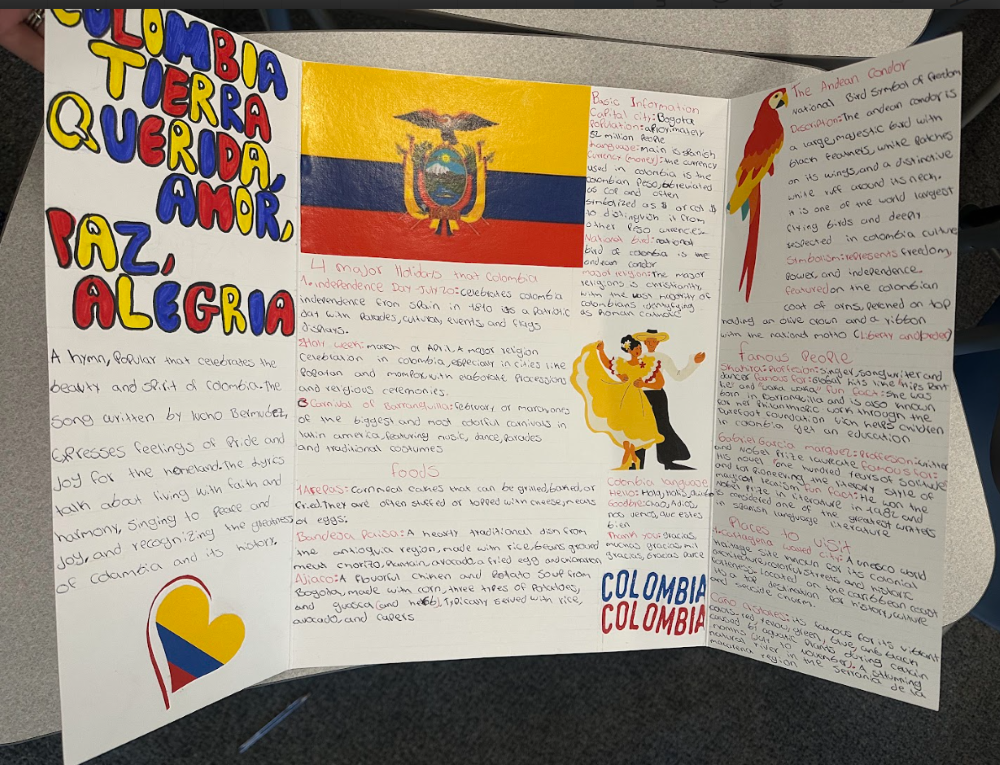 COLOMBIA
TIERRA
QUERIDA,
AMOR,
PAZ,
ALEGRIA
A hymn, Popular that celebrates the
beauty and spirit of colombia. The
song written by lucho Bermudez,
expresses feelings of Pride and
Joy for the homeland. The lyrics
talk about living with faith and
harmony, singing to peace and
joy, and recognizing the greatness
of colombia and its history.
4 major Holidays that Colombia
1. independence Day July 20: celebrates colombia
independence from Spain in 1810 is a Patriotic
day with Parades, cultural events, and flags
displays.
2 Holy week: march or April. A major religion
celebration in colombia, especially in cities like
Popayan and mompox with elaborate processions
and religious ceremonies.
3 Carnival of Barranquilla: February or march one
of the biggest and most colorful carnivals in
latin america, featuring music, dance, parades
and traditional costumes
Foods
1 Arepas: cornmeal cakes that can be grilled, baked, or
fried. They are often stuffed or topped with cheese, meats
or eggs.
Bandeja Paisa: A hearty traditional dish from
the antioquia region, made with rice, beans, ground
meat, chorizo, Plantain, avocado, a fried egg and
Ajiaco: A flavorful chicken and Potato Soup from
Bogota, made with corn, three types of Potatoes,
and guasca (and herb), Typically served with rice,
avocado, and capers
Basic Information
Capital city: Bogota
Population: aproximately
52 million People
language: main is spanish
Currency (money): the currency
used in colombia is the
colombian Peso, abreviated
as COP and often
simbolized as $ or col $
to distinguish it from
other Peso currencies.
National bird: national
bird of colombia is the
andean condor
major religion: The major
religions is christianity
with the vast majority of
colombians identifying
as Roman catholic
Colombia language
Hello: Hola,
Goodbye: chao, Adios,
nos vemos, que estes
bien
Thank you: Gracias,
muchas gracias, mil
gracias, Gracias
COLOMBIA
COLOMBIA
The Andean Condor
National Bird symbol of freedom
Description: The andean condor is
a large, majestic bird with
black feathers, white Patches
on its wings, and a distinctive
white ruff around its neck.
it is one of the world largest
flying birds and deeply
respected in colombia culture
Simbolism: represents freedom,
Power, and independence.
featured on the colombian
coat of arms, perched on top
holding an olive crown and a ribbon
with the national motto (Liberty and order)
Famous People
Shakira: Profession: singer, songwriter and
dancer famous for: Global hits like "hips Dont
lie" and "waka waka" fun fact: She was
born in barranquilla and is also known
for her Philanthropic work through the
barefoot foundation wich helps children
in colombia get an education
Gabriel Garcia marquez: Profession: writer
and Nobel Prize laureate famous for:
His novel "one hundred years of solitude
and for pioneering the literary style of
magical realism fun fact: He won the
Nobel Prize in literature in 1982 and
is considered one of the greatest writers
spanish language literature
Places to visit
1. Cartagena walled city: A unesco world
Heritage site known for its colonial
architecture, colorful streets, and historic
Located on the caribbean coast
its a top destination for history, culture
and charm.
Caño cristales: its famous for its vibrant
colors, red, yellow, green, blue, and black
caused by aquatic Plants during certain
months (July to November). A stunning
natural river in the serrania de la
macarena region